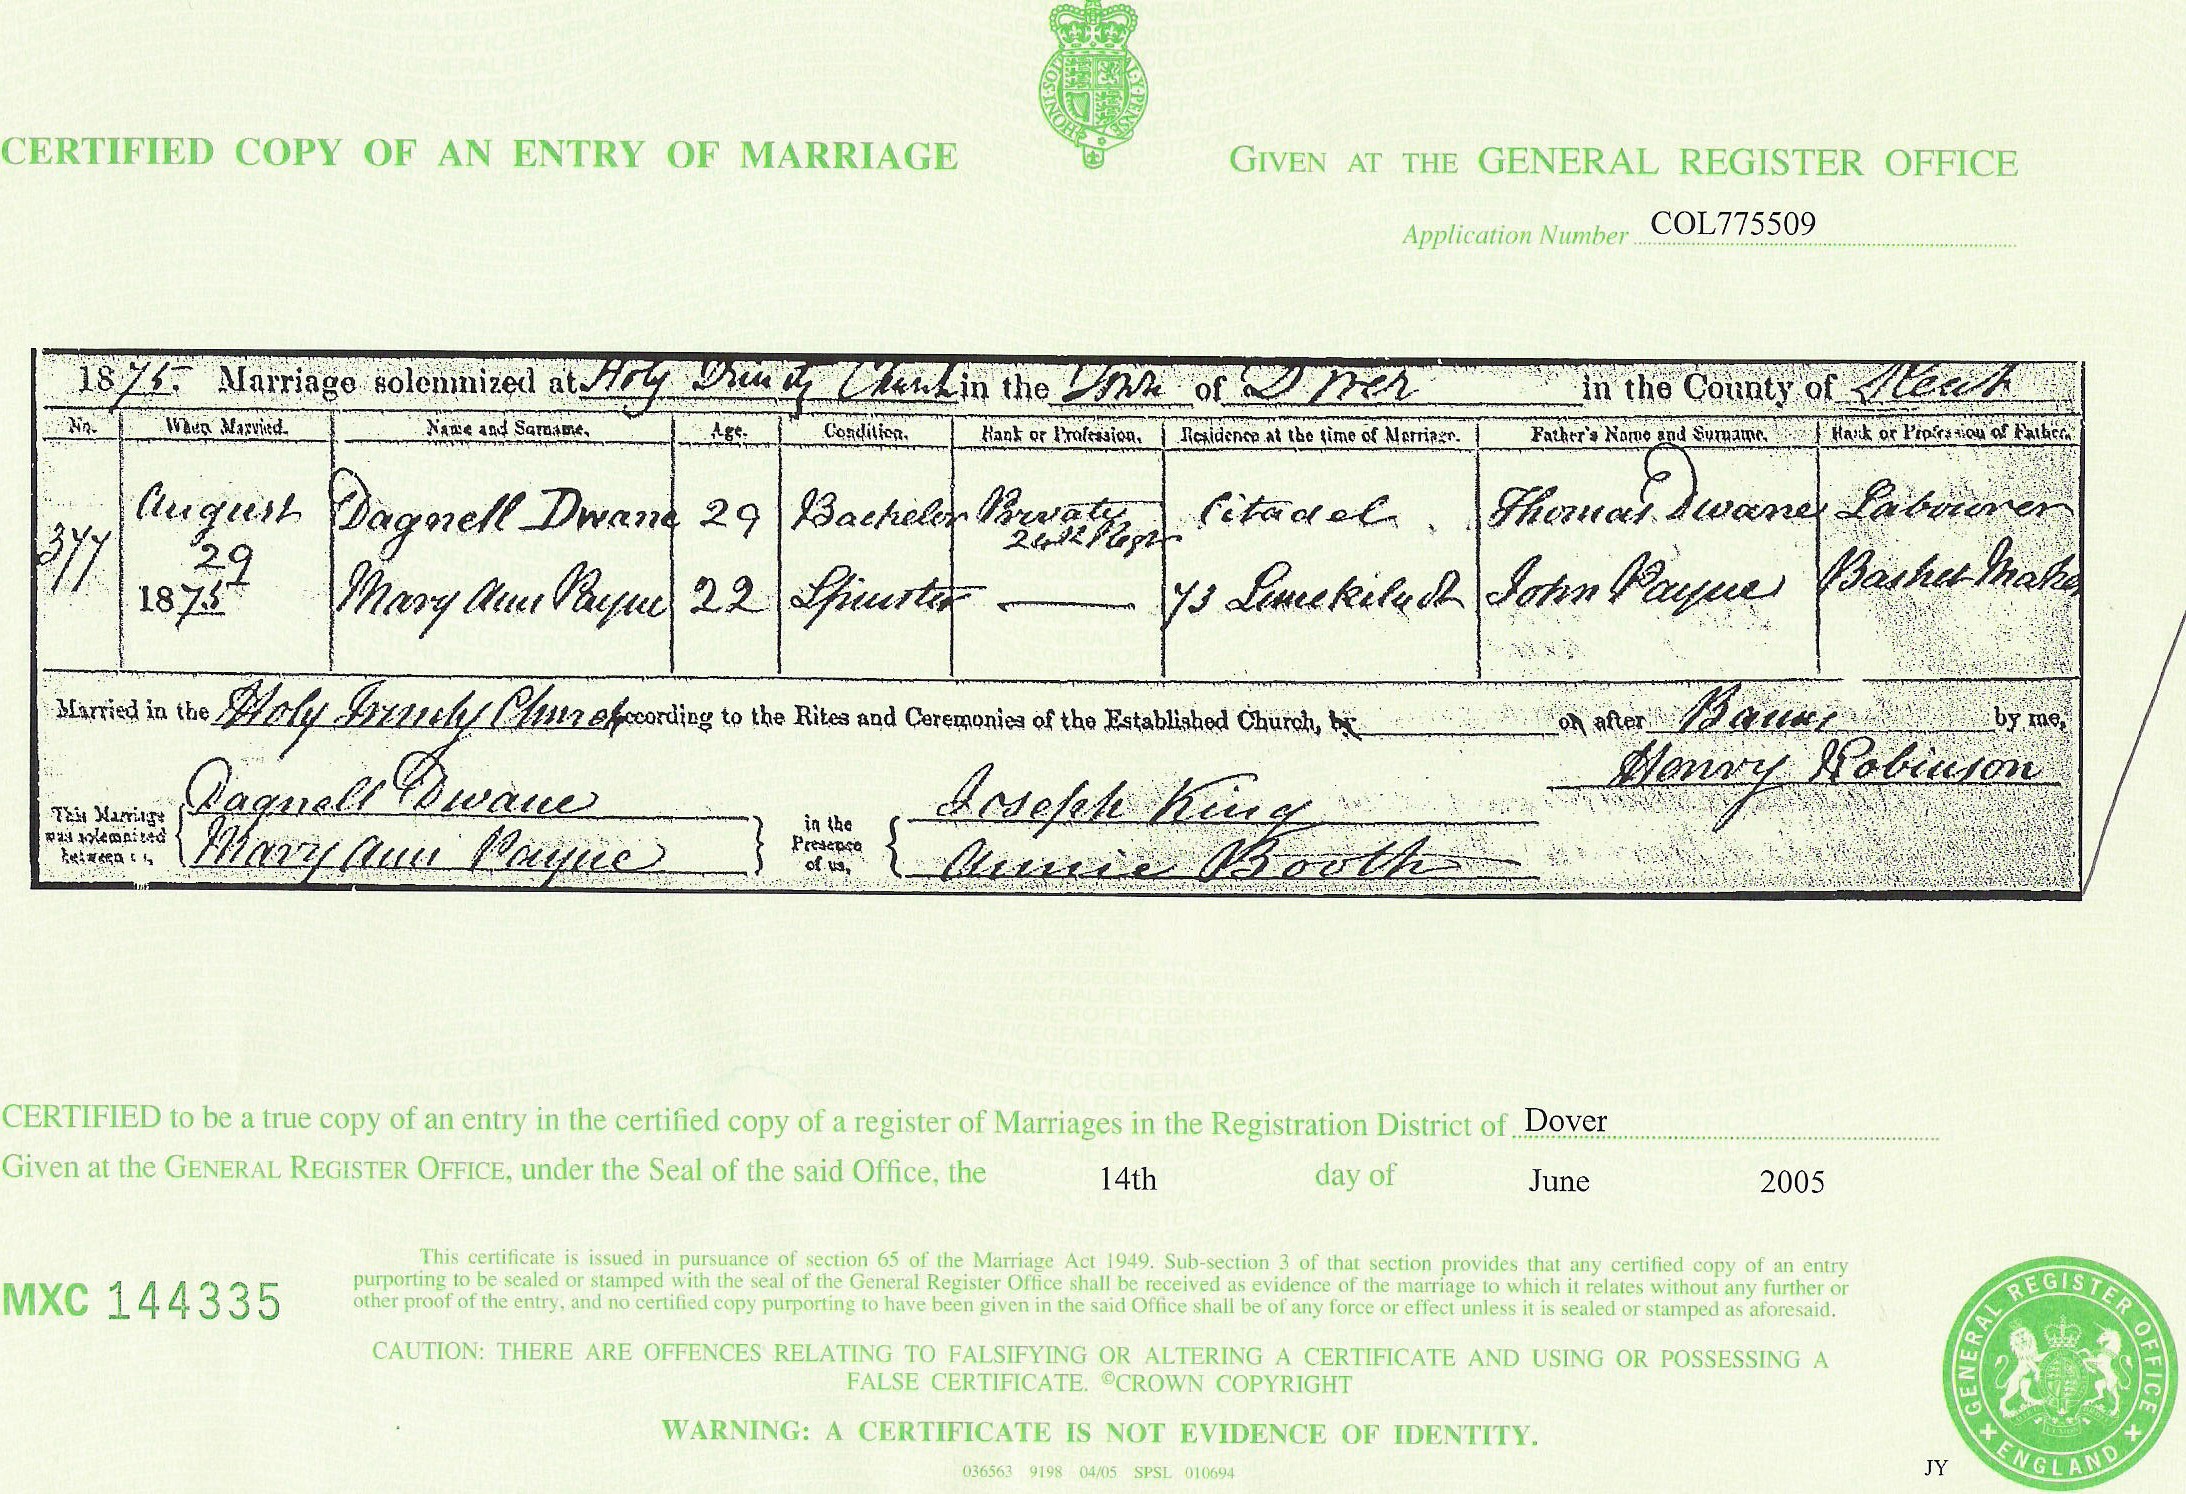 HONI·SOIT Y·PENSE
CERTIFIED COPY OF AN ENTRY OF MARRIAGE
GIVEN AT THE GENERAL REGISTER OFFICE
Application Number COL775509
1875. Marriage solemnized at Holy Trinity Church in the Town of Dover in the County of Kent
No. When Married. Name and Surname. Age. Condition. Rank or Profession. Residence at the time of Marriage. Father's Name and Surname. Rank or Profession of Father.
377 August 29 1875
Dagnell Dwane 29 Bachelor Private 24th Regt Citadel Thomas Dwane Labourer
Mary Ann Payne 22 Spinster — 73 Limekiln St John Payne Basket Maker
Married in the Holy Trinity Church according to the Rites and Ceremonies of the Established Church, by or after Banns by me,
Henry Robinson
This Marriage was solemnized between us, { Dagnell Dwane } in the Presence of us, { Joseph King
Mary Ann Payne Annie Booth
CERTIFIED to be a true copy of an entry in the certified copy of a register of Marriages in the Registration District of Dover
Given at the GENERAL REGISTER OFFICE, under the Seal of the said Office, the 14th day of June 2005
This certificate is issued in pursuance of section 65 of the Marriage Act 1949. Sub-section 3 of that section provides that any certified copy of an entry
purporting to be sealed or stamped with the seal of the General Register Office shall be received as evidence of the marriage to which it relates without any further or
other proof of the entry, and no certified copy purporting to have been given in the said Office shall be of any force or effect unless it is sealed or stamped as aforesaid.
MXC 144335
CAUTION: THERE ARE OFFENCES RELATING TO FALSIFYING OR ALTERING A CERTIFICATE AND USING OR POSSESSING A
FALSE CERTIFICATE. ©CROWN COPYRIGHT
WARNING: A CERTIFICATE IS NOT EVIDENCE OF IDENTITY.
036563 9198 04/05 SPSL 010694
JY
GENERAL REGISTER OFFICE + ENGLAND +